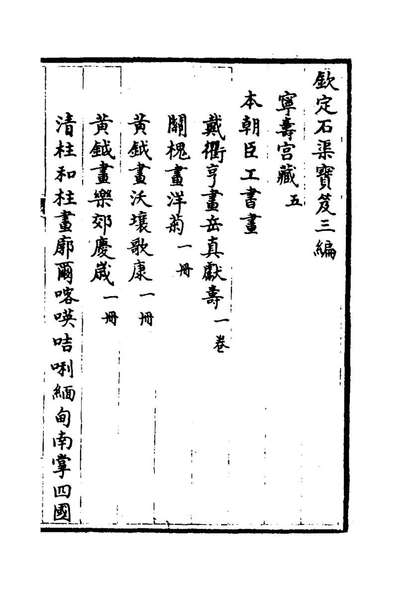 欽定石渠寶笈三編
寧壽宮藏五
本朝臣工書畫
戴衢亨畫岳真獻壽一卷
關槐畫洋菊一冊
黃鉞畫沃壤歌康一冊
黃鉞畫樂郊慶嵗一冊
清柱和柱畫廓爾喀𠸄咭唎緬甸南掌四國